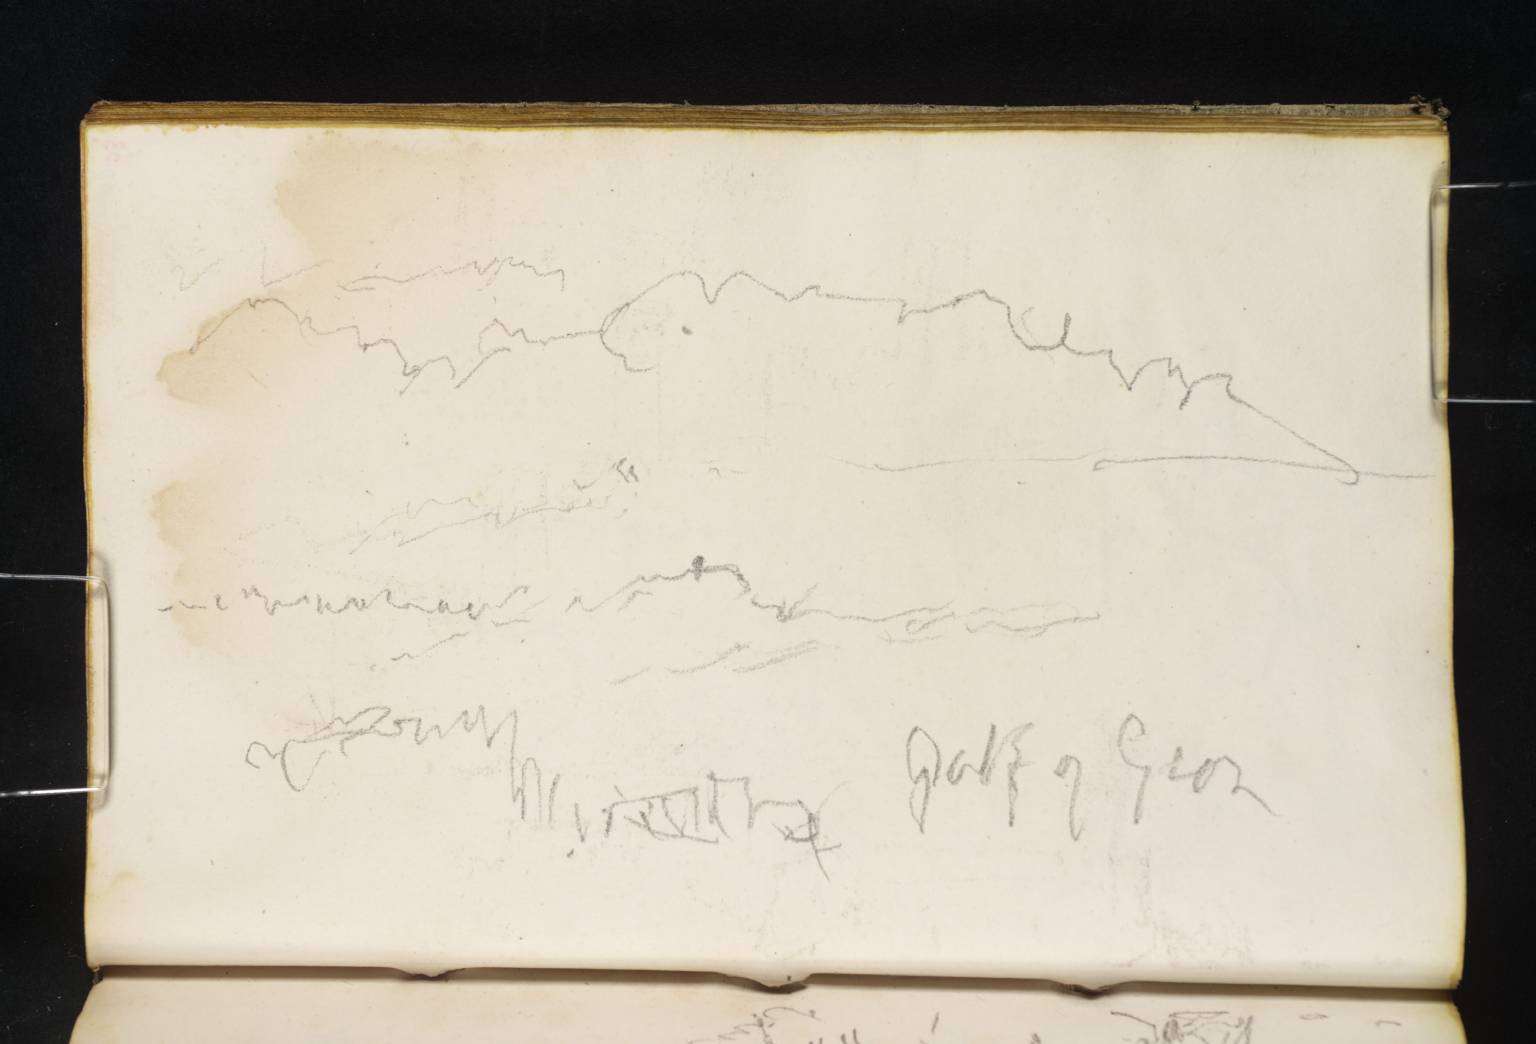 Golf of Geon